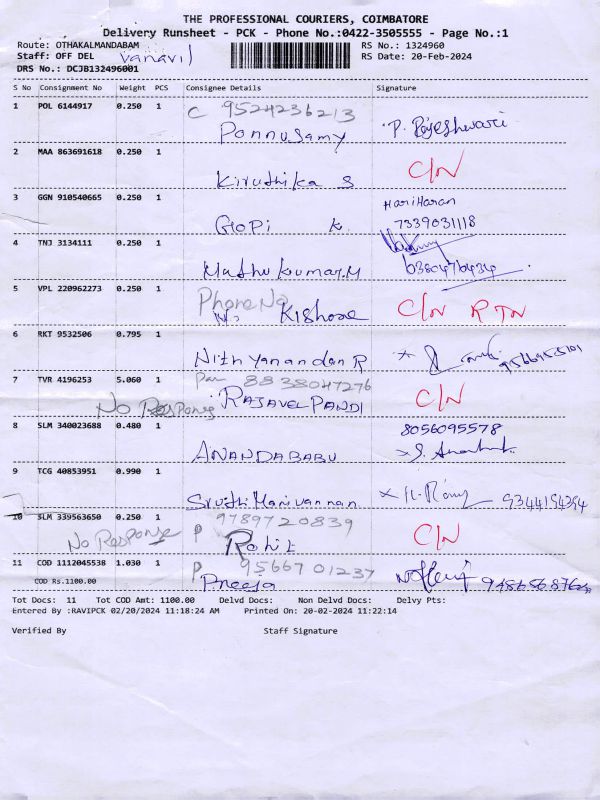 THE PROFESSIONAL COURIERS, COIMBATORE
Delivery Runsheet - PCK - Phone No.:0422-3505555 - Page No.:1
Route: OTHAKALMANDABAM RS No.: 1324960
Staff: OFF DEL vanavil RS Date: 20-Feb-2024
DRS No.: DCJB132496001
S No Consignment No Weight PCS Consignee Details Signature
1 POL 6144917 0.250 1 C 9524236213
Ponnusamy P. Rajeshwari
2 MAA 863691618 0.250 1 C/N
Kiruthika S
3 GGN 910540665 0.250 1 HariHaran
Gopi K. 7339031118
4 TNJ 3134111 0.250 1
Muthu Kumar.M 6380476434
5 VPL 220962273 0.250 1 Phone No C/N RTN
Kishore
6 RKT 9532506 0.795 1
Nithyanandan R
7 TVR 4196253 5.060 1 8838047276 C/N
No Response RAJAVEL PANDI
8 SLM 340023688 0.480 1 8056095578
ANANDABABU
9 TCG 40853951 0.990 1
Sruthi Manivannan 9344194394
10 SLM 339563650 0.250 1 P 9789720839 C/N
No Response Rohit
11 COD 1112045538 1.030 1 P 9566701237
COD Rs.1100.00 Preeja
Tot Docs: 11 Tot COD Amt: 1100.00 Delvd Docs: Non Delvd Docs: Delvy Pts:
Entered By :RAVIPCK 02/20/2024 11:18:24 AM Printed On: 20-02-2024 11:22:14
Verified By Staff Signature